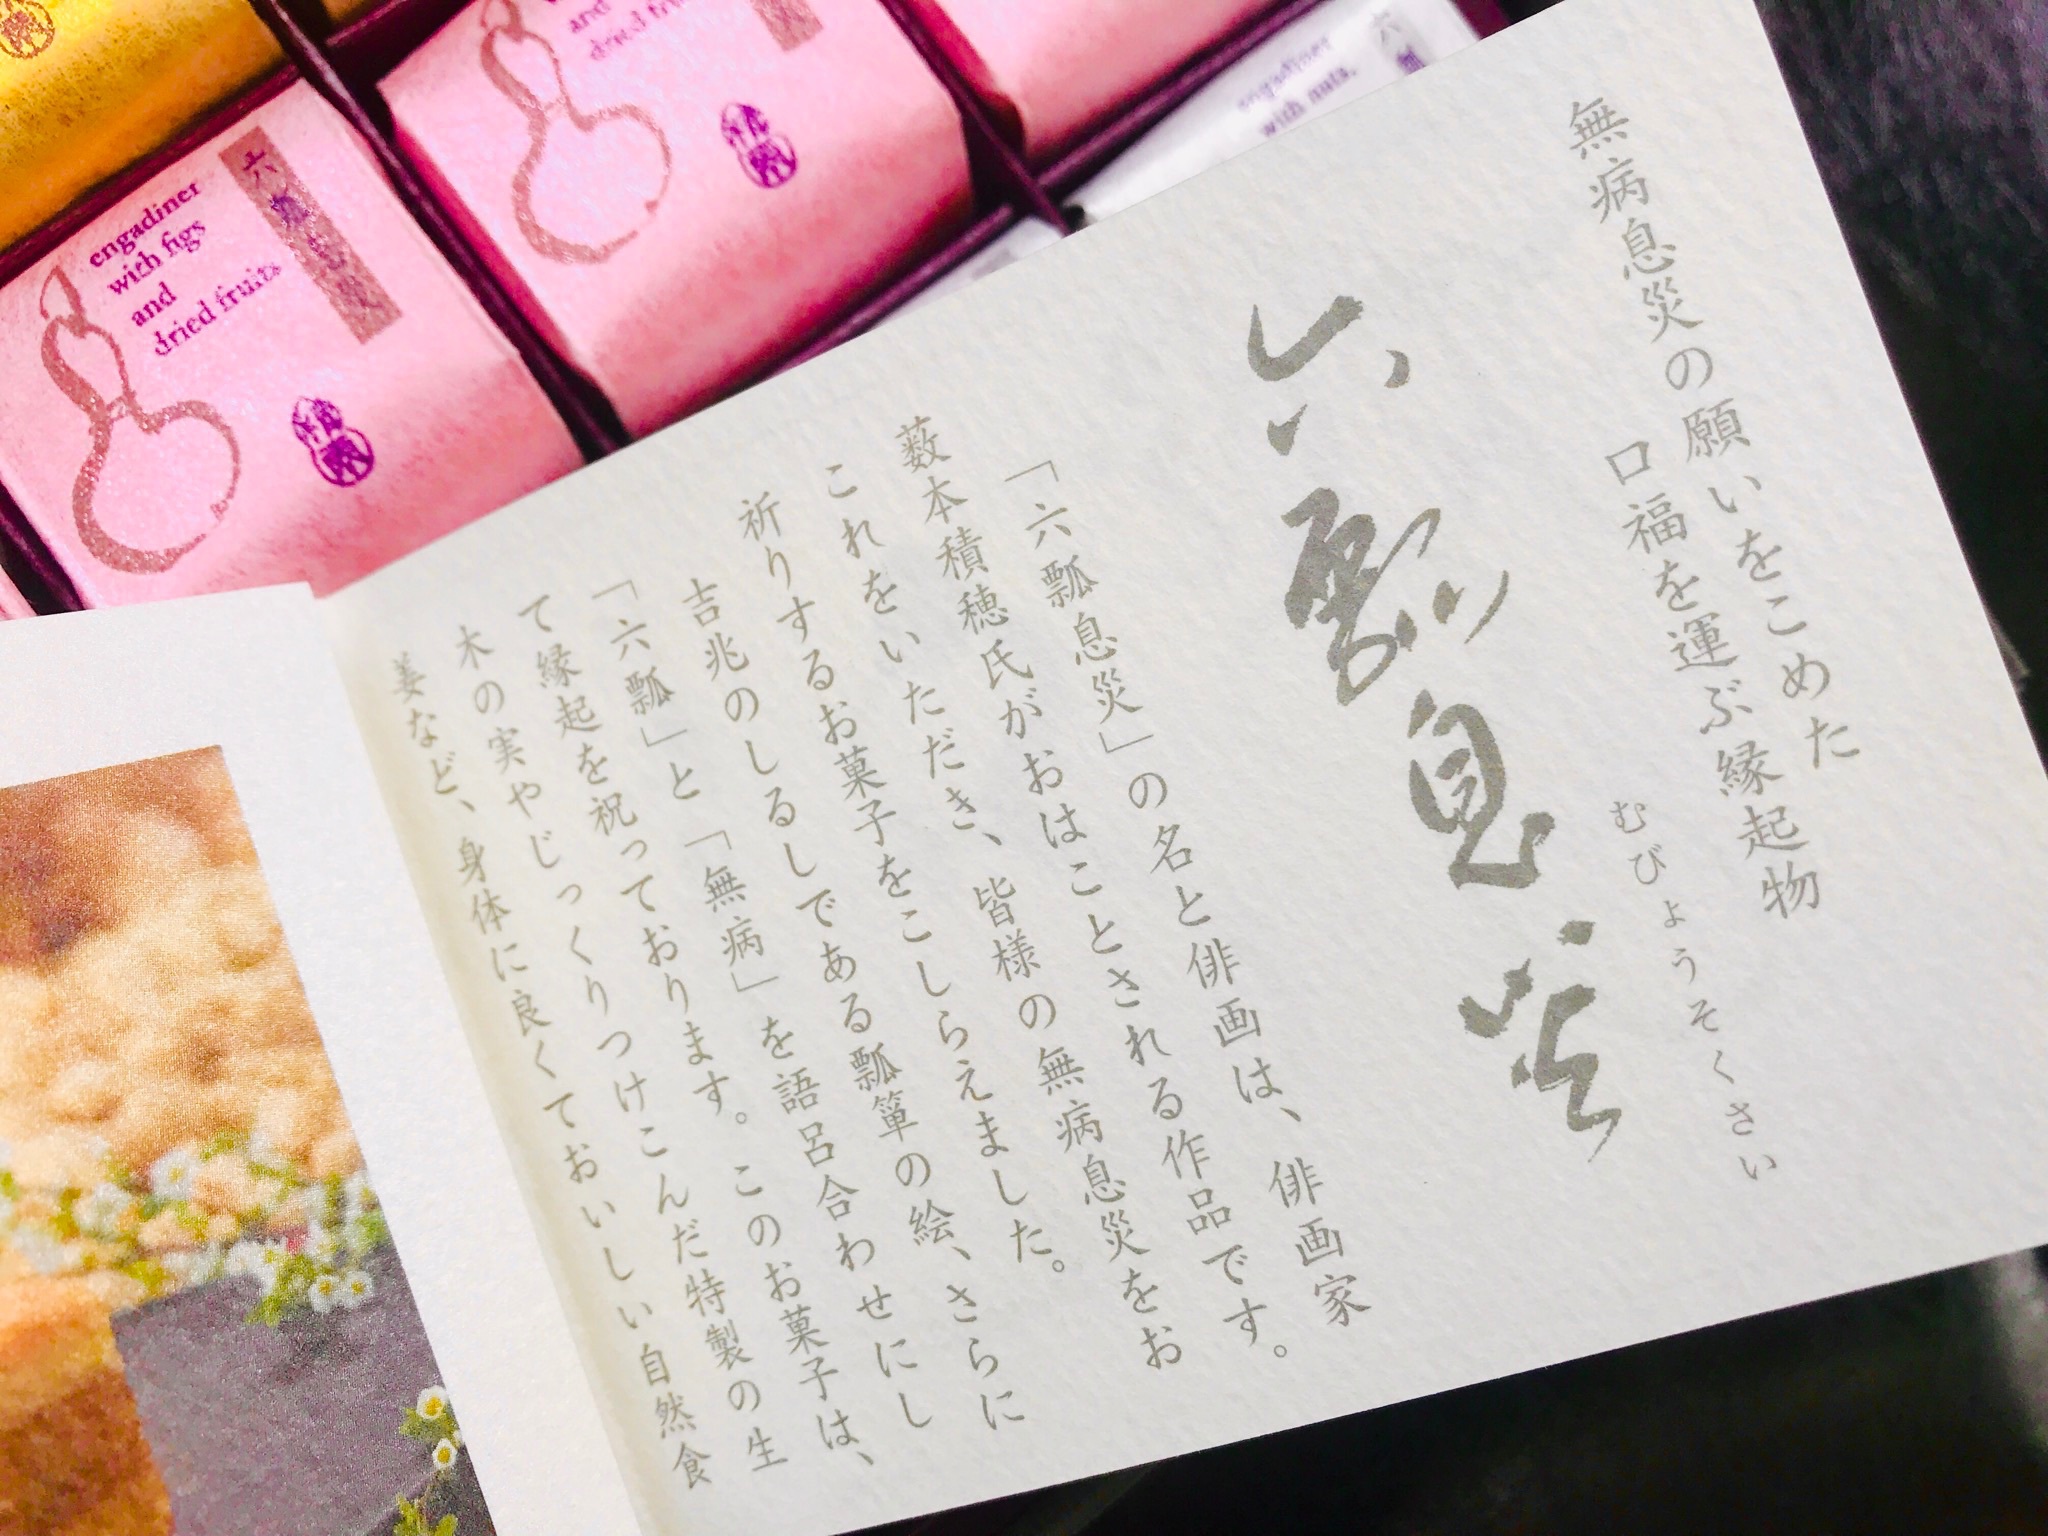 無病息災の願いをこめた
口福を運ぶ縁起物
むびょうそくさい
六瓢息災
「六瓢息災」の名と俳画は、俳画家
薮本積穂氏がおはことされる作品です。
これをいただき、皆様の無病息災をお
祈りするお菓子をこしらえました。
吉兆のしるしである瓢箪の絵、さらに
「六瓢」と「無病」を語呂合わせにし
て縁起を祝っております。このお菓子は、
木の実やじっくりつけこんだ特製の生
姜など、身体に良くておいしい自然食
engadiner
with figs
and
dried fruits
六瓢息災
and
dried fruits
engadiner
with nuts.
六